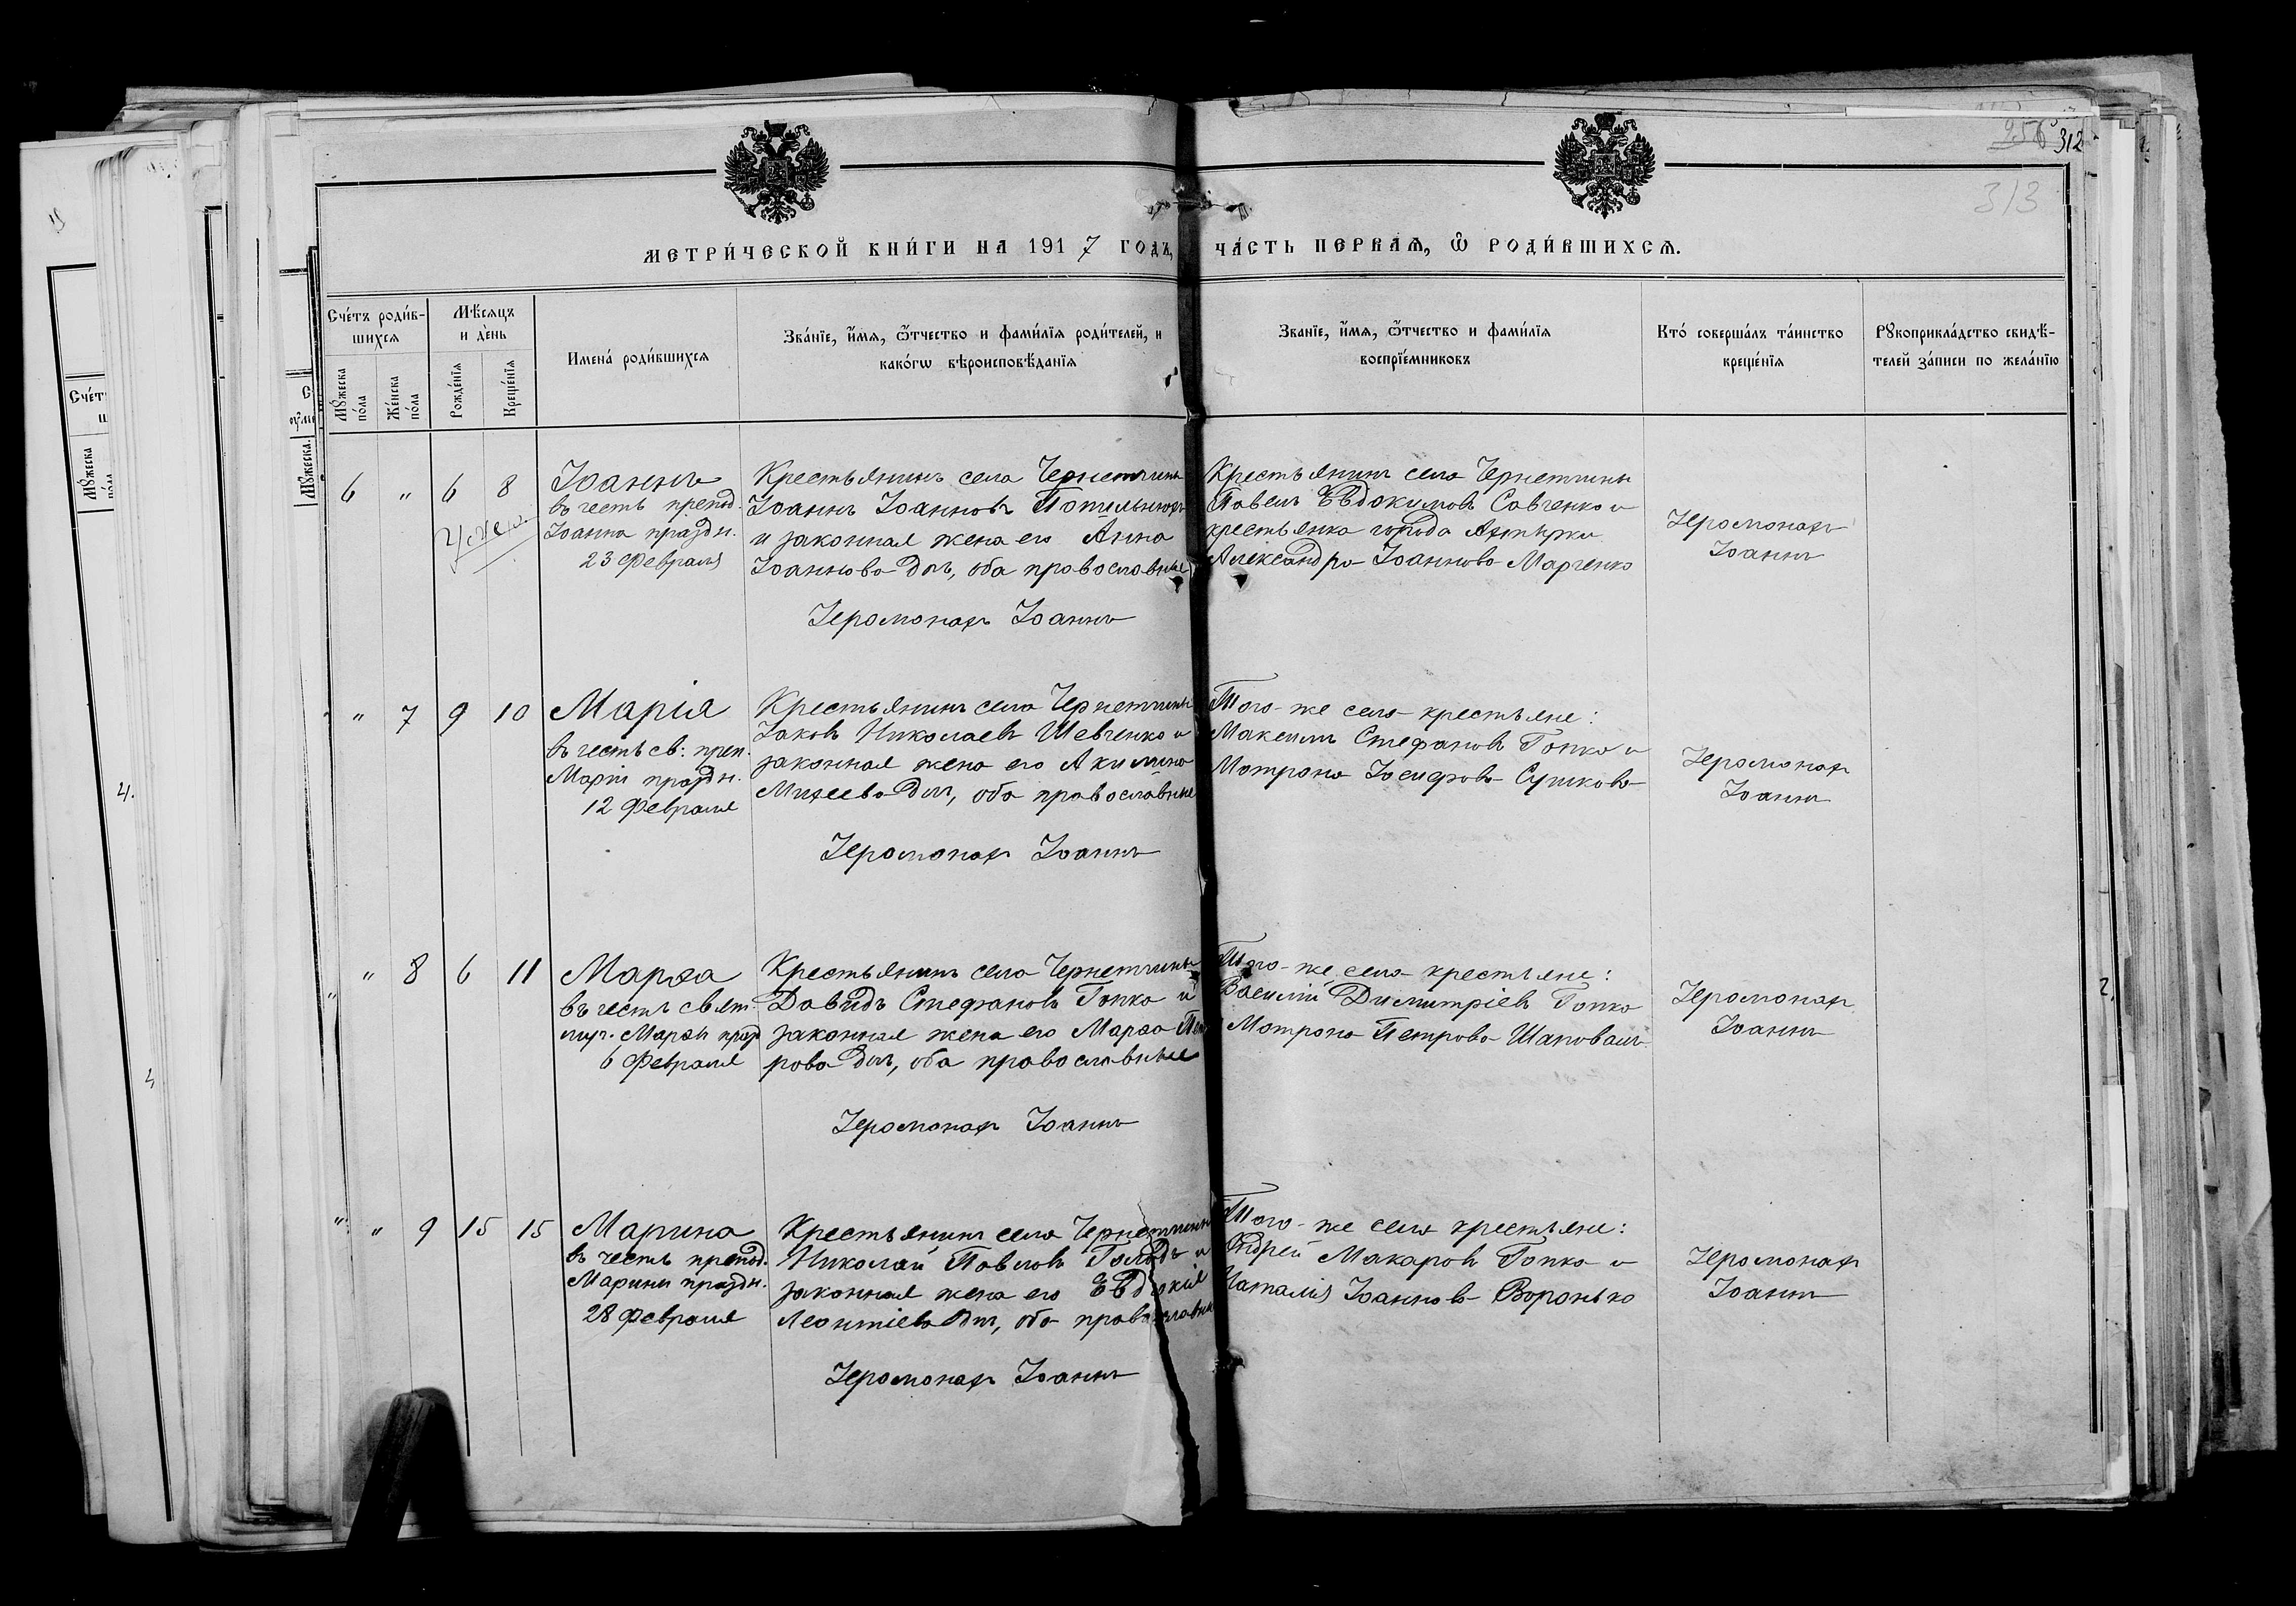 256 312
313
МЕТРИ́ЧЕСКОЙ КНИ́ГИ НА 1917 ГОДЪ, ЧА́СТЬ ПЕРВАѦ, Ѿ РОДИ́ВШИХСѦ.
Сче́тъ роди́в-
шихся
Мѣ́сяцъ
и де́нь
Мꙋ́жеска
по́ла
Же́нска
по́ла
Рожде́нїя
Креще́нїя
Имена̀ роди́вшихся
Зва́нїе, и́мя, ѻ́тчество и фами́лїя роди́телей, и
како́гѡ вѣроисповѣ́данїя
Званїе, и́мя, ѻ́тчество и фами́лїя
воспрїе́мниковъ
Кто́ соверша́лъ та́инство
креще́нїя
Рꙋкоприкла́дство свидѣ́-
телей за́писи по жела́нїю
6 " 6 8
Іоаннъ
въ честь препод.
Іоанна праздн.
23 Февраля
Крестьянинъ села Чернетчины
Іоаннъ Іоанновъ
и законная жена его Анна
Іоаннова дщ., оба православные
Іеромонахъ Іоаннъ
Крестьянинъ села Чернетчины
Павелъ Евдокимовъ Савченко и
крестьянка города Ахтырки
Александра Іоаннова Марченко
Іеромонахъ
Іоаннъ
" 7 9 10
Марія
въ честь св: преп.
Маріи праздн.
12 Февраля
Крестьянинъ села Чернетчины
Іаковъ Николаевъ Шевченко и
законная жена его Акилина
Михеева дщ., оба православные
Іеромонахъ Іоаннъ
Того-же села крестьяне:
Максимъ Стефановъ Гопка и
Мотрона Іосифова Сушкова
Іеромонахъ
Іоаннъ
" 8 6 11
Марѳа
въ честь свят.
муч. Марѳы празд
6 Февраля
Крестьянинъ села Чернетчины
Давидъ Стефановъ Гопка и
законная жена его Марѳа Пет
рова дщ., оба православные
Іеромонахъ Іоаннъ
Того-же села крестьяне:
Василій Димитріевъ Гопка
Мотрона Петрова Шаповалъ
Іеромонахъ
Іоаннъ
" 9 15 15
Марина
въ честь препод.
Марины праздн.
28 Февраля
Крестьянинъ села Чернетчины
Николай Павловъ и
законная жена его Евдокія
Леонтіева дщ., оба православные
Іеромонахъ Іоаннъ
Того-же села крестьяне:
Андрей Макаровъ Гопка и
Наталія Іоаннова Воронько
Іеромонахъ
Іоаннъ